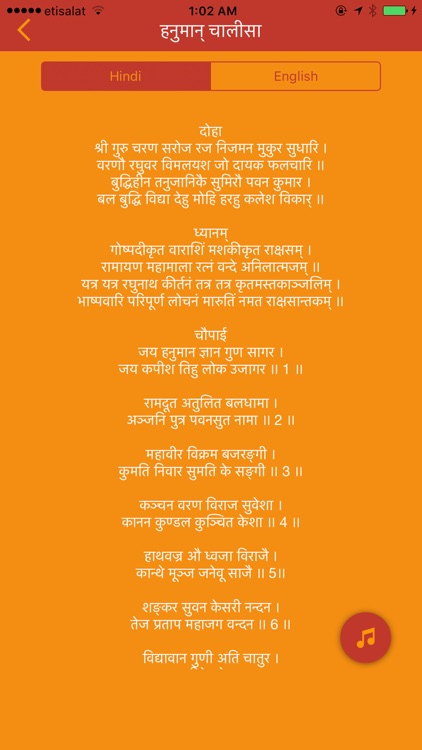 etisalat 1:02 AM
हनुमान् चालीसा
Hindi English
दोहा
श्री गुरु चरण सरोज रज निजमन मुकुर सुधारि ।
वरणौ रघुवर विमलयश जो दायक फलचारि ॥
बुद्धिहीन तनुजानिकै सुमिरौ पवन कुमार ।
बल बुद्धि विद्या देहु मोहि हरहु कलेश विकार् ॥
ध्यानम्
गोष्पदीकृत वाराशिं मशकीकृत राक्षसम् ।
रामायण महामाला रत्नं वन्दे अनिलात्मजम् ॥
यत्र यत्र रघुनाथ कीर्तनं तत्र तत्र कृतमस्तकाञ्जलिम् ।
भाष्पवारि परिपूर्ण लोचनं मारुतिं नमत राक्षसान्तकम् ॥
चौपाई
जय हनुमान ज्ञान गुण सागर ।
जय कपीश तिहु लोक उजागर ॥ 1 ॥
रामदूत अतुलित बलधामा ।
अञ्जनि पुत्र पवनसुत नामा ॥ 2 ॥
महावीर विक्रम बजरङ्गी ।
कुमति निवार सुमति के सङ्गी ॥ 3 ॥
कञ्चन वरण विराज सुवेशा ।
कानन कुण्डल कुञ्चित केशा ॥ 4 ॥
हाथवज्र औ ध्वजा विराजै ।
कान्थे मूञ्ज जनेवू साजै ॥ 5॥
शङ्कर सुवन केसरी नन्दन ।
तेज प्रताप महाजग वन्दन ॥ 6 ॥
विद्यावान गुणी अति चातुर ।